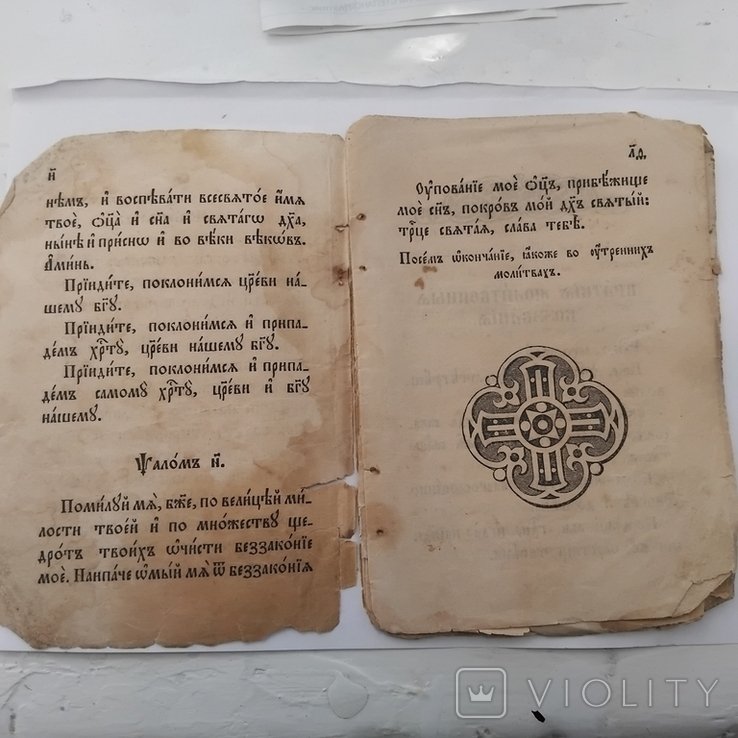 и҃
не́мъ, и҆ воспѣва́ти всесвѧто́е и҆́мѧ
твоѐ, ѻ҆ц҃а̀ и҆ сн҃а и҆ свѧта́гѡ дх҃а,
ны́нѣ и҆ при́снѡ и҆ во вѣ́ки вѣкѡ́въ.
А҆ми́нь.
Прїиди́те, поклони́мсѧ цр҃е́ви на́-
шемꙋ бг҃ꙋ.
Прїиди́те, поклони́мсѧ и҆ припа-
де́мъ хрⷭ҇тꙋ̀, цр҃е́ви на́шемꙋ бг҃ꙋ.
Прїиди́те, поклони́мсѧ и҆ припа-
де́мъ самомꙋ̀ хрⷭ҇тꙋ̀, цр҃е́ви и҆ бг҃ꙋ
на́шемꙋ.
Ѱало́мъ н҃.
Поми́лꙋй мѧ̀, бж҃е, по вели́цѣй ми́-
лости твое́й и҆ по мно́жествꙋ ще-
дро́тъ твои́хъ ѡ҆чи́сти беззако́нїе
моѐ. Наипа́че ѡ҆мы́й мѧ̀ ѿ беззако́нїѧ
Оу҆пова́нїе моѐ ѻ҆ц҃ъ, прибѣ́жище
моѐ сн҃ъ, покро́въ мо́й дх҃ъ свѧты́й:
трⷪ҇це свѧта́ѧ, сла́ва тебѣ̀.
Посе́мъ ѡ҆конча́нїе, ꙗ҆́коже во оу҆́треннихъ
моли́твахъ.
VIOLITY